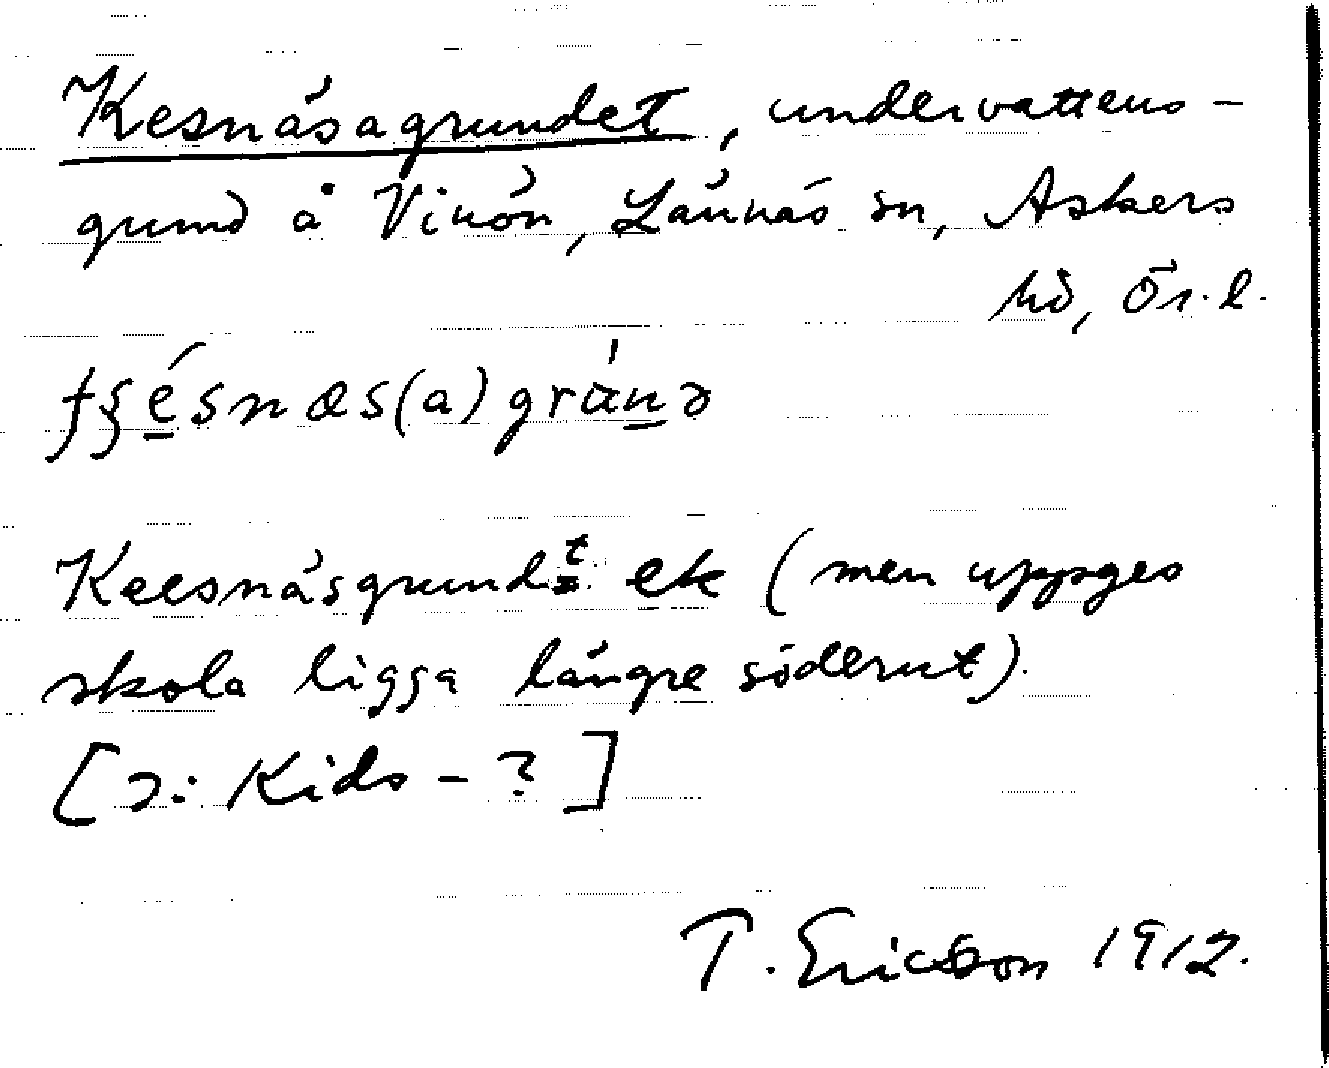 Kesnäsagrundet, undervattens-
grund å Vinön, Lännäs sn, Askers
hd, Ör. l.
Keesnäsgrundet ek (men uppges
skola ligga längre söderut).
[ɔ: Kids-?]
T. Ericsson 1912.